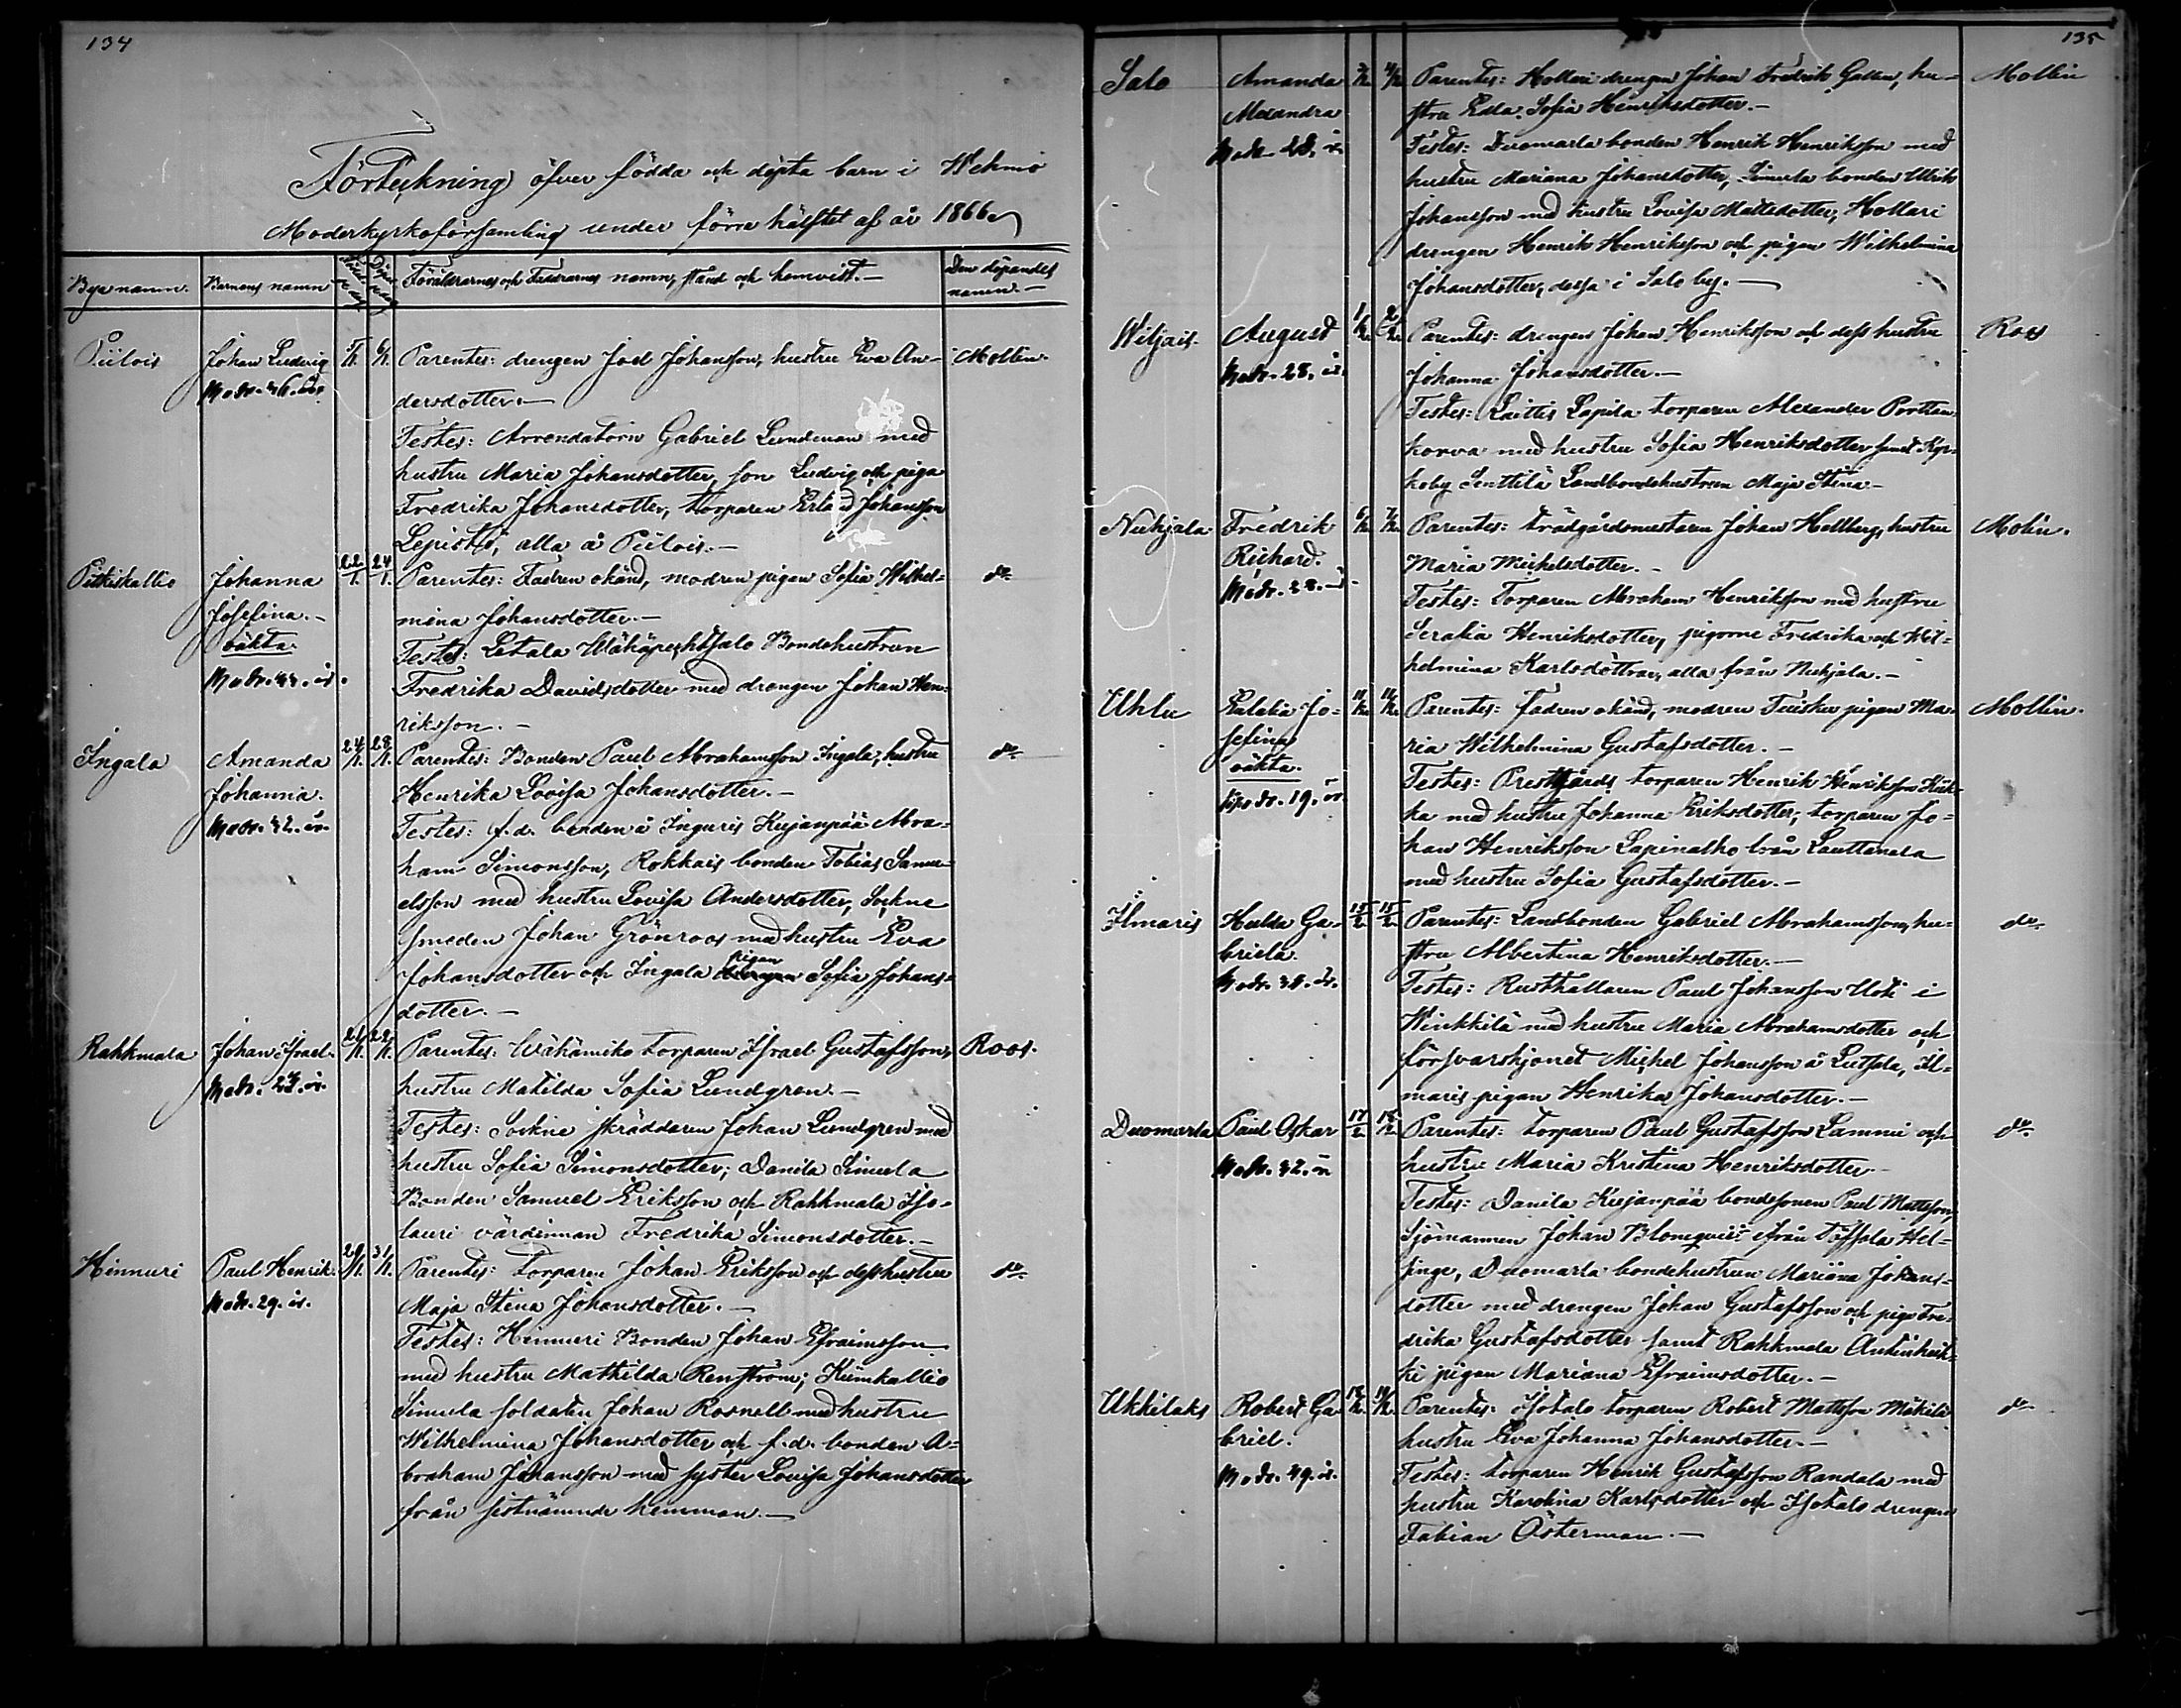 134
Förteckning öfver födda och döpta barn i Wehmo
Moderkyrkoförsamling under förra hälftet af år 1866
Bya namn. Barnens namn Födde Döpte Föräldrarnes och Faddrarnes namn, stånd och hemvist.— Den döpandes namn.—
Piilois Johan Ludvig 5/1. 6/1. Parentes: drengen Joel Johansson, hustru Eva An- Mollin.
Modr. 36. år dersdotter.—
Testes: Arrendatorn Gabriel Lundman med
hustru Maria Johansdotter, son Ludvig och piga
Fredrika Johansdotter, torparen Erland Johansson
Lepistö, alla å Piilois.—
Pitkiskallio Johanna 22/1. 24/1. Parentes: Fadren okänd, modren pigan Sofia Wilhel= do
Josefina.— mina Johansdotter.—
oäkta. Testes: Letala Wähäpeshtsalo Bondehustrun
Modr. år. Fredrika Davidsdotter med drengen Johan Hen-
riksson.—
Ingala Amanda 24/1. 28/1. Parentes: Bonden Paul Abrahamsson Ingala, hustru do
Johanna. Henrika Lovisa Johansdotter.—
Modr. 32. år. Testes: f.d. bonden å Inguris Kujanpää Abra=
ham Simonsson, Rokkais bonden Tobias Samu-
elsson med hustru Lovisa Andersdotter, Sockne
smeden Johan Grönroos med hustru Eva
Johansdotter och Ingala pigan Sofia Johans=
dotter.—
Rahkmala Johan Israel. 21/1. 22/1. Parentes: Wähämiko torparen Israel Gustafsson, Roos.
Modr. 24. år. hustru Matilda Sofia Lundgren.—
Testes: Sockne skräddaren Johan Lundgren med
hustru Sofia Simonsdotter; Danila Simula
Bonden Samuel Eriksson och Rahkmala Iso-
lauri värdinnan Fredrika Simonsdotter.—
Hinnuri Paul Henrik. 29/1. 31/1. Parentes: Torparen Johan Eriksson och dess hustru do
Modr. 29. år. Maja Stina Johansdotter.—
Testes: Hinnuri Bonden Johan Efraimsson
med hustru Mathilda Renström; Kiimkallio
Simula soldaten Johan Rosnell med hustru
Wilhelmina Johansdotter och f.d. bonden A=
braham Johansson med syster Lovisa Johansdotter
från sistnämnde hemman.—
135
Salo Amanda 3/2. 4/2. Parentes: Hollari drengen Johan Fredrik Gallen, hu- Mollin
Alexandra stru Edla Sofia Henriksdotter.—
Modr. 28. år. Testes: Duomarla bonden Henrik Henriksson med
hustru Mariana Johansdotter, Simula bonden Ulrik
Johansson med hustru Lovisa Mattsdotter, Hollari
drengen Henrik Henriksson och pigan Wilhelmina
Johansdotter, dessa i Salo by.—
Wiljais. August 1/2. 2/2. Parentes: drengen Johan Henriksson och dess hustru Roos
Modr. 28. år. Johanna Johansdotter.—
Testes: Laittis Lapila torparen Alexander Porttan-
korva med hustru Sofia Henriksdotter samt Kyr-
koby Senttilä Landbondehustrun Maja Stina—
Nuhjala Fredrik 6/2. 7/2. Parentes: trädgårdsmästaren Johan Hellberg, hustru Molin.
Richard. Maria Michelsdotter.—
Modr. 28. år. Testes: torparen Abraham Henriksson med hustru
Serafia Henriksdotter, pigorne Fredrika och Wil=
helmina Karlsdöttrar, alla från Nuhjala.—
Uhlu Eulalia Jo= 11/2. 11/2. Parentes: fadren okänd, modren Tuisku pigan Ma- Mollin.
sefina ria Wilhelmina Gustafsdotter.—
oäkta. Testes: Prestgårds torparen Henrik Henriksson Kuk-
Modr. 19. år. ka med hustru Johanna Eriksdotter; torparen Jo=
han Henriksson Lapinalho från Lauttamala
med hustru Sofia Gustafsdotter.—
Ilmaris Hulda Ga- 13/2. 15/2. Parentes: Landbonden Gabriel Abrahamsson, hu- do
briela. stru Albertina Henriksdotter.—
Modr. år. Testes: Rusthållaren Paul Johansson Uoti i
Winkkilä med hustru Maria Abrahamsdotter och
försvarskjonet Michel Johansson å Lutsala, Il-
maris pigan Henrika Johansdotter.—
Duomarla Paul Oskar 17/2. 18/2. Parentes: torparen Paul Gustafsson Lammi och do
Modr. 32. år hustru Maria Kristina Henriksdotter.—
Testes: Danila Kujanpää bondesonen Paul Mattsson,
Sjömannen Johan Blomqvist från Töfsala Hel-
singe, Duomarla bondehustrun Mariana Johans=
dotter med drengen Johan Gustafsson och piga Fre-
drika Gustafsdotter samt Rahkmala Antinheik-
ki pigan Mariana Efraimsdotter.—
Ukkilaks Robert Ga- 18/2. 19/2. Parentes: Isotalo torparen Robert Mattsson Mäkilä do
briel. hustru Eva Johanna Johansdotter.—
Modr. 39. år. Testes: torparen Henrik Gustafsson Randala med
hustru Karolina Karlsdotter och Isotalo drengen
Fabian Österman.—